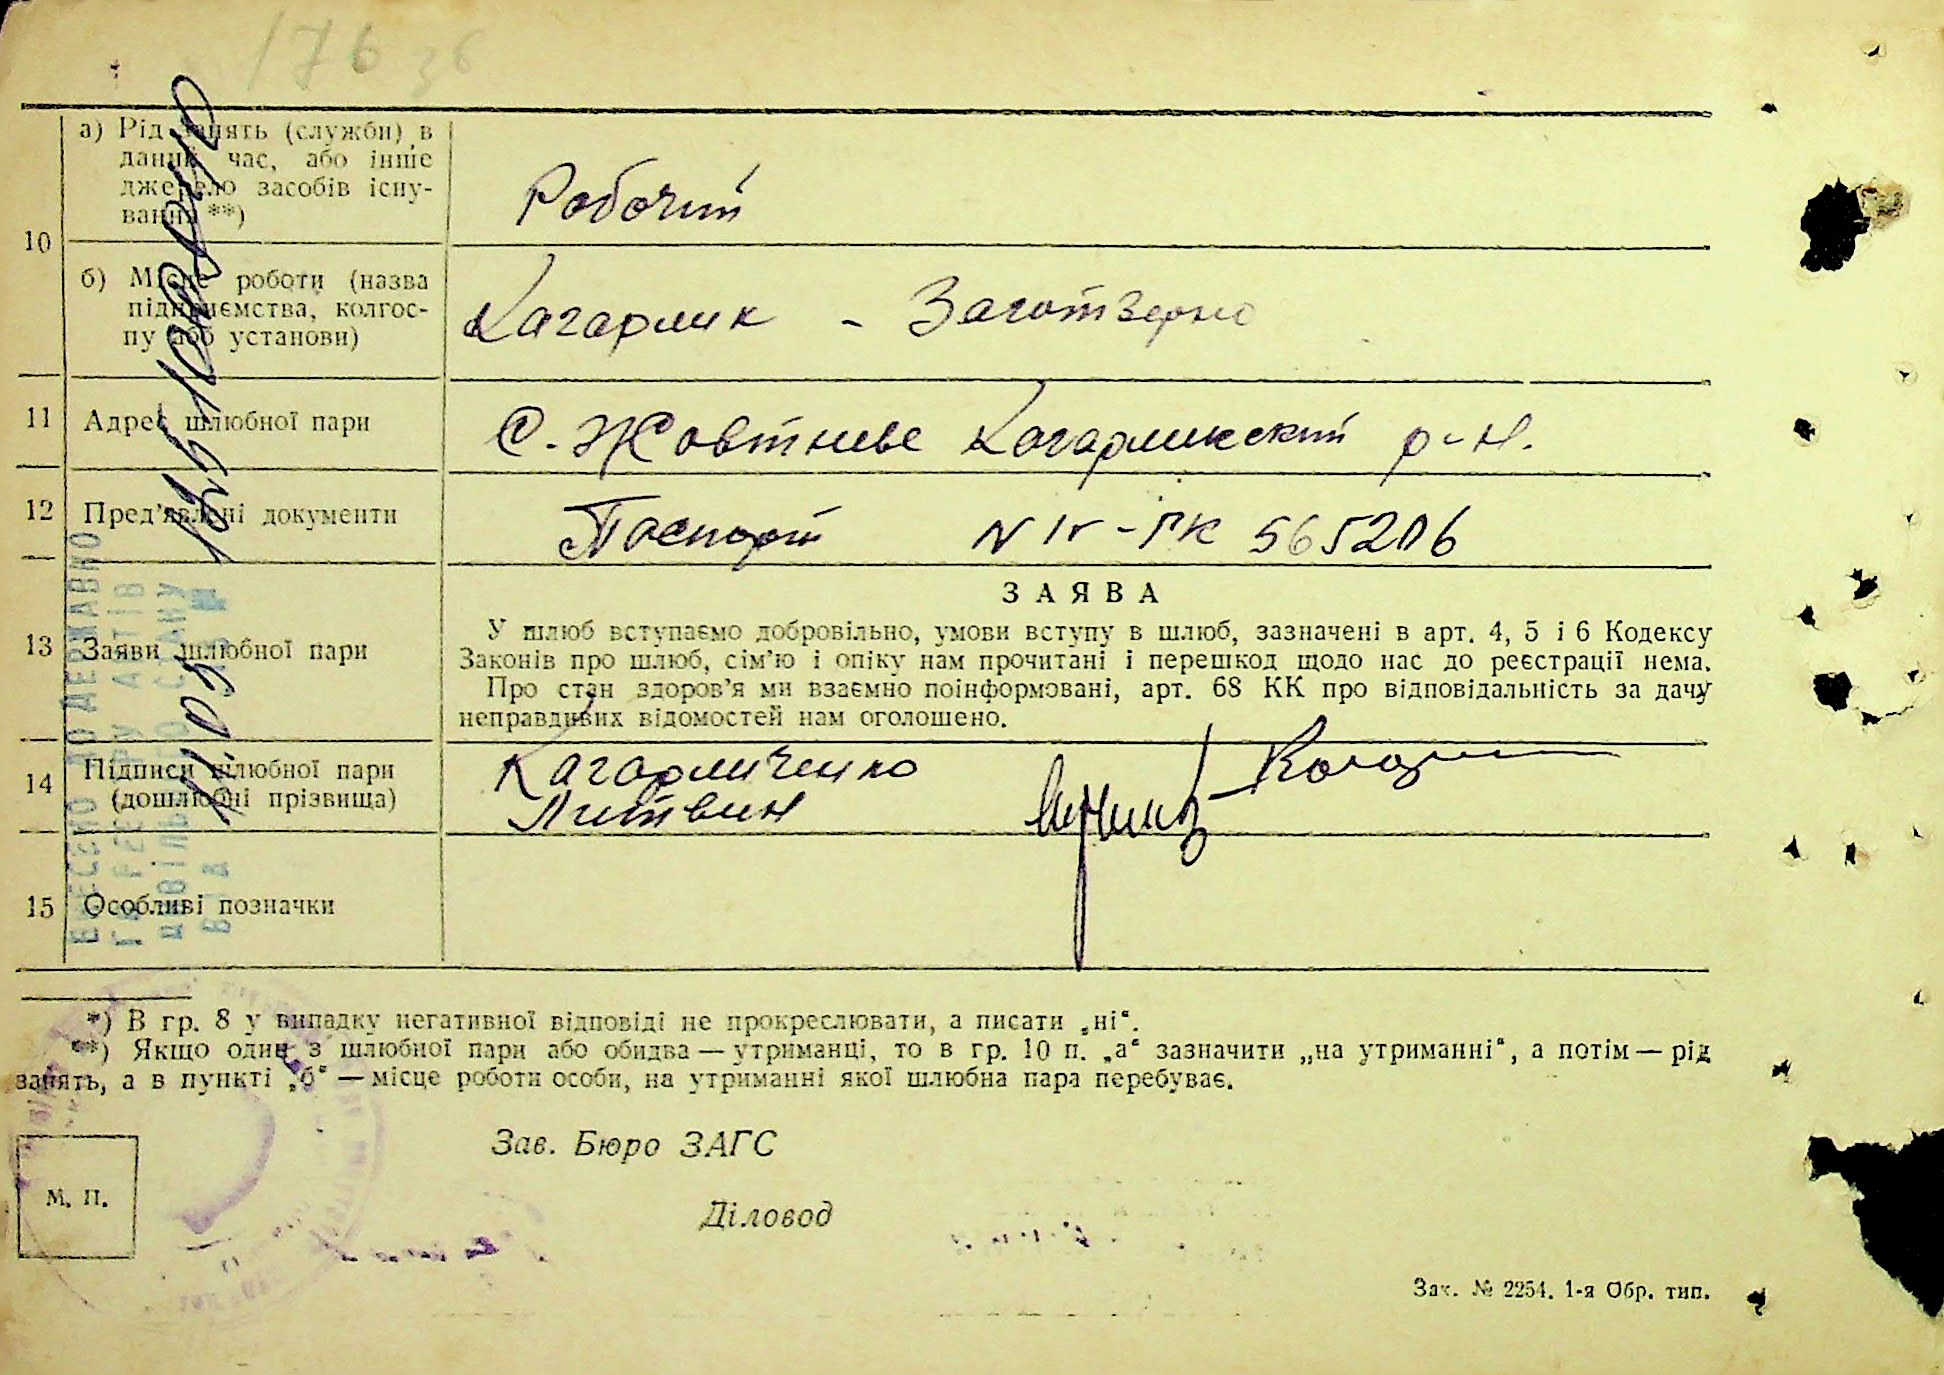 176 зв
а) Рід занять (служби) в
даний час, або інше
джерело засобів існу-
вання **)
Робочий
10
б) Місце роботи (назва
підприємства, колгос-
пу або установи)
Кагарлик - Заготзерно
11
Адрес шлюбної пари
с. Жовтневе Кагарликский р-н.
12
Пред’явлені документи
Паспорт N IV-РК 565206
13
Заяви шлюбної пари
ЗАЯВА
У шлюб вступаємо добровільно, умови вступу в шлюб, зазначені в арт. 4, 5 і 6 Кодексу
Законів про шлюб, сім’ю і опіку нам прочитані і перешкод щодо нас до реєстрації нема.
Про стан здоров’я ми взаємно поінформовані, арт. 68 КК про відповідальність за дачу
неправдивих відомостей нам оголошено.
14
Підписи шлюбної пари
(дошлюбні прізвища)
Кагарличенко
Литвин
15
Особливі позначки
ВНЕСЕНО ДО ДЕРЖАВНО
ГО РЕЄСТРУ АКТІВ
ЦИВІЛЬНОГО СТАНУ
ВІД №
*) В гр. 8 у випадку негативної відповіді не прокреслювати, а писати „ні“.
**) Якщо один з шлюбної пари або обидва — утриманці, то в гр. 10 п. „а“ зазначити „на утриманні“, а потім — рід
занять, а в пункті „б“ — місце роботи особи, на утриманні якої шлюбна пара перебуває.
Зав. Бюро ЗАГС
М. П.
Діловод
Зак. № 2254. 1-я Обр. тип.